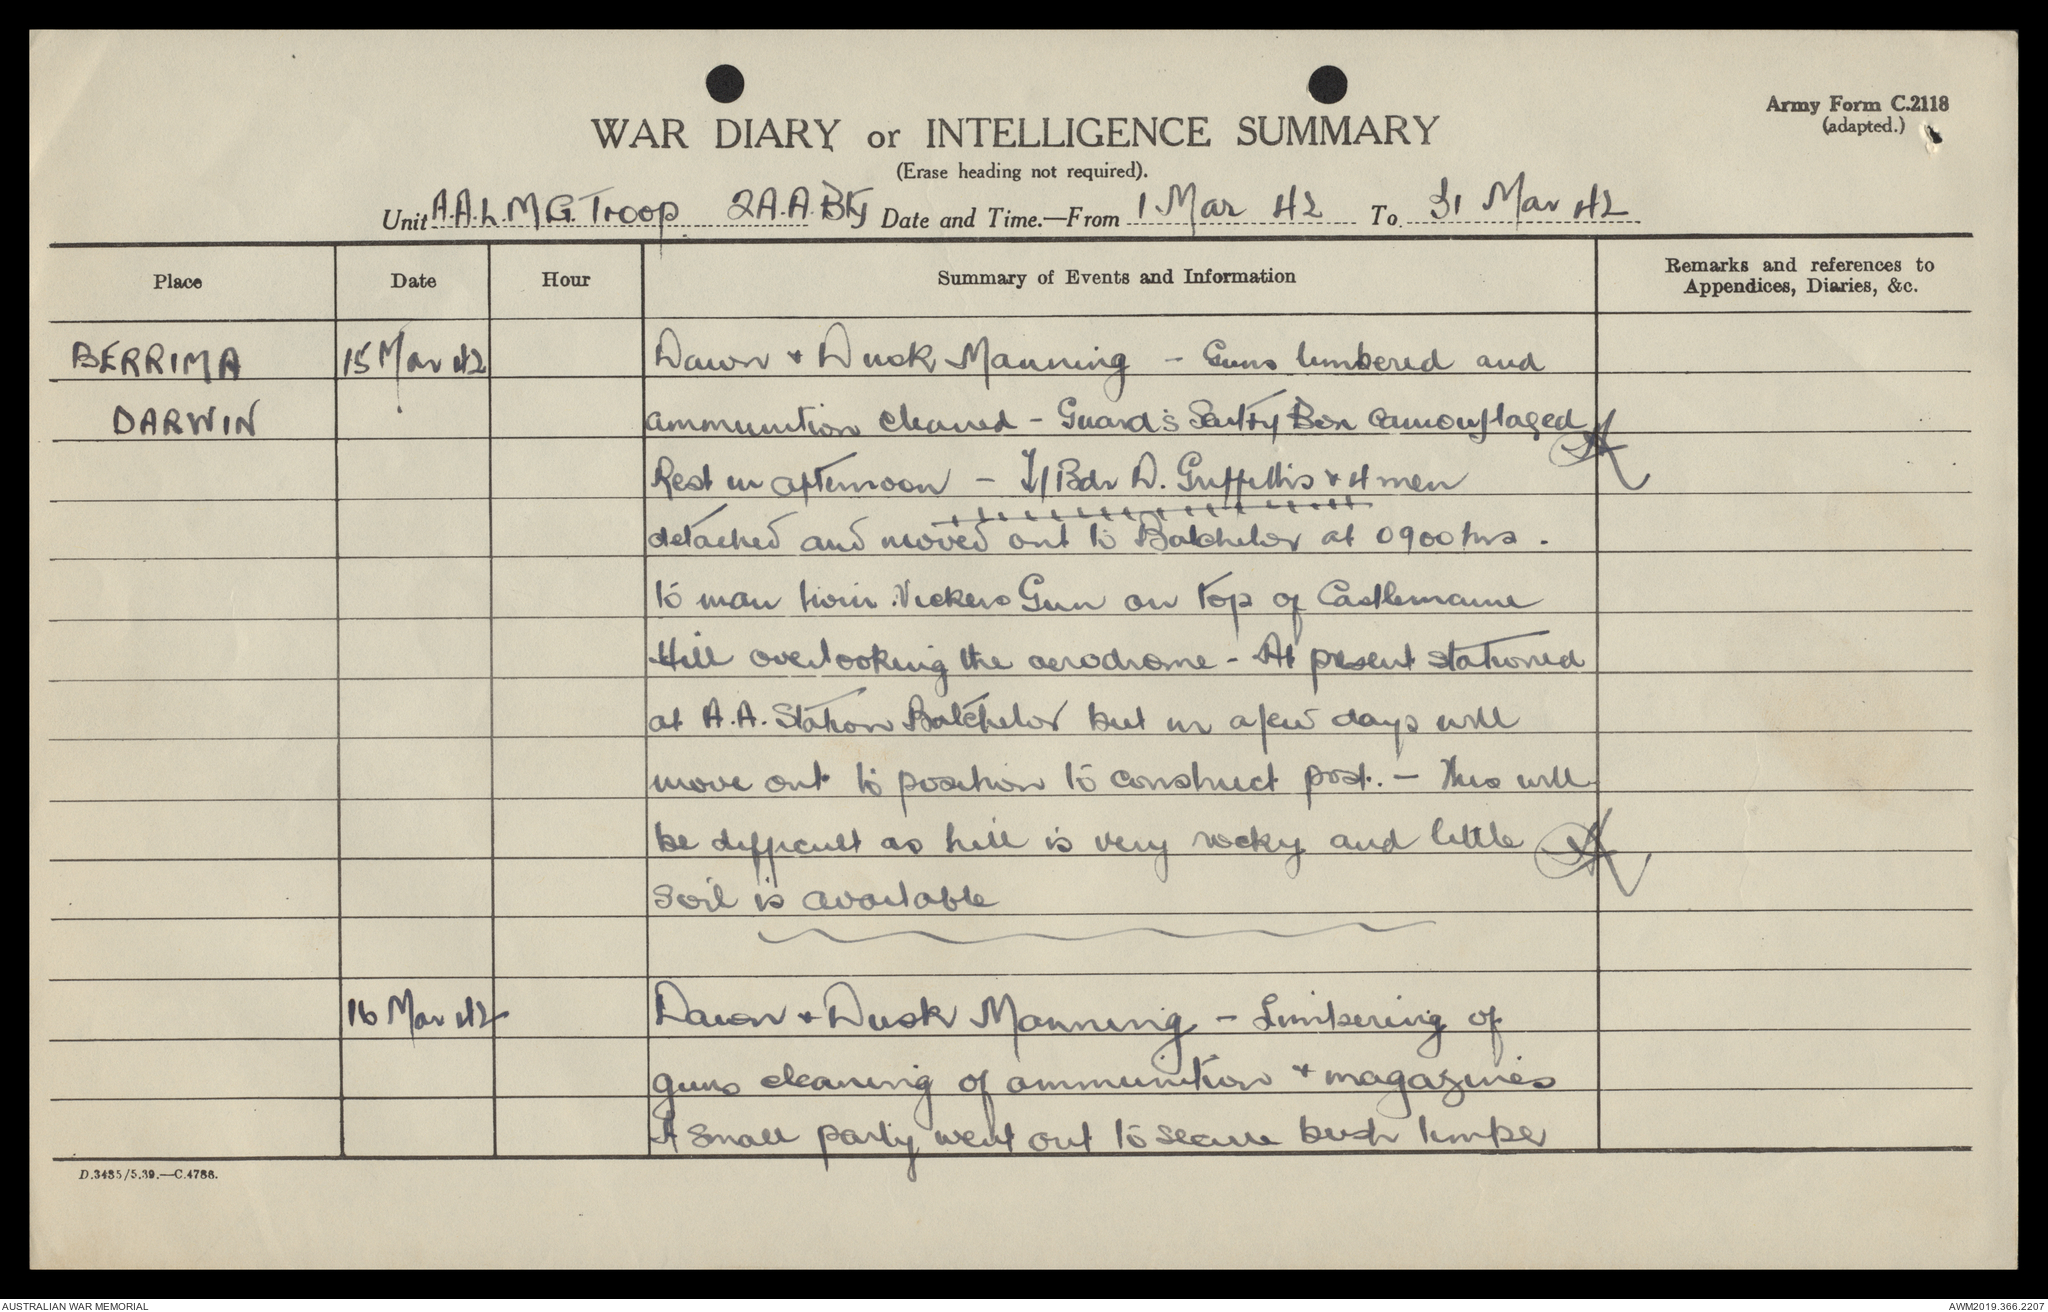 Army Form C.2118
(adapted.)
WAR DIARY or INTELLIGENCE SUMMARY
(Erase heading not required).
Unit A.A.L.M.G. Troop 2A.A. Bty Date and Time.—From 1 Mar 42 To 31 Mar 42
Place Date Hour Summary of Events and Information Remarks and references to Appendices, Diaries, &c.
BERRIMA 15 Mar 42 Dawn + Dusk Manning - Guns limbered and
DARWIN ammunition cleaned - Guard's Sentry Box camouflaged
Rest in afternoon - T/Bdr D. Griffiths + 4 men
detached and moved out to Batchelor at 0900 hrs.
to man twin Vickers Gun on top of Castlemaine
Hill overlooking the aerodrome - At present stationed
at A.A. Station Batchelor but in a few days will
move out to position to construct post. - This will
be difficult as hill is very rocky and little
soil is available
16 Mar 42 Dawn + Dusk Manning - Limbering of
guns cleaning of ammunition + magazines
A small party went out to secure bush timber
D.3485/5.39.—C.4788.
AUSTRALIAN WAR MEMORIAL
AWM2019.366.2207